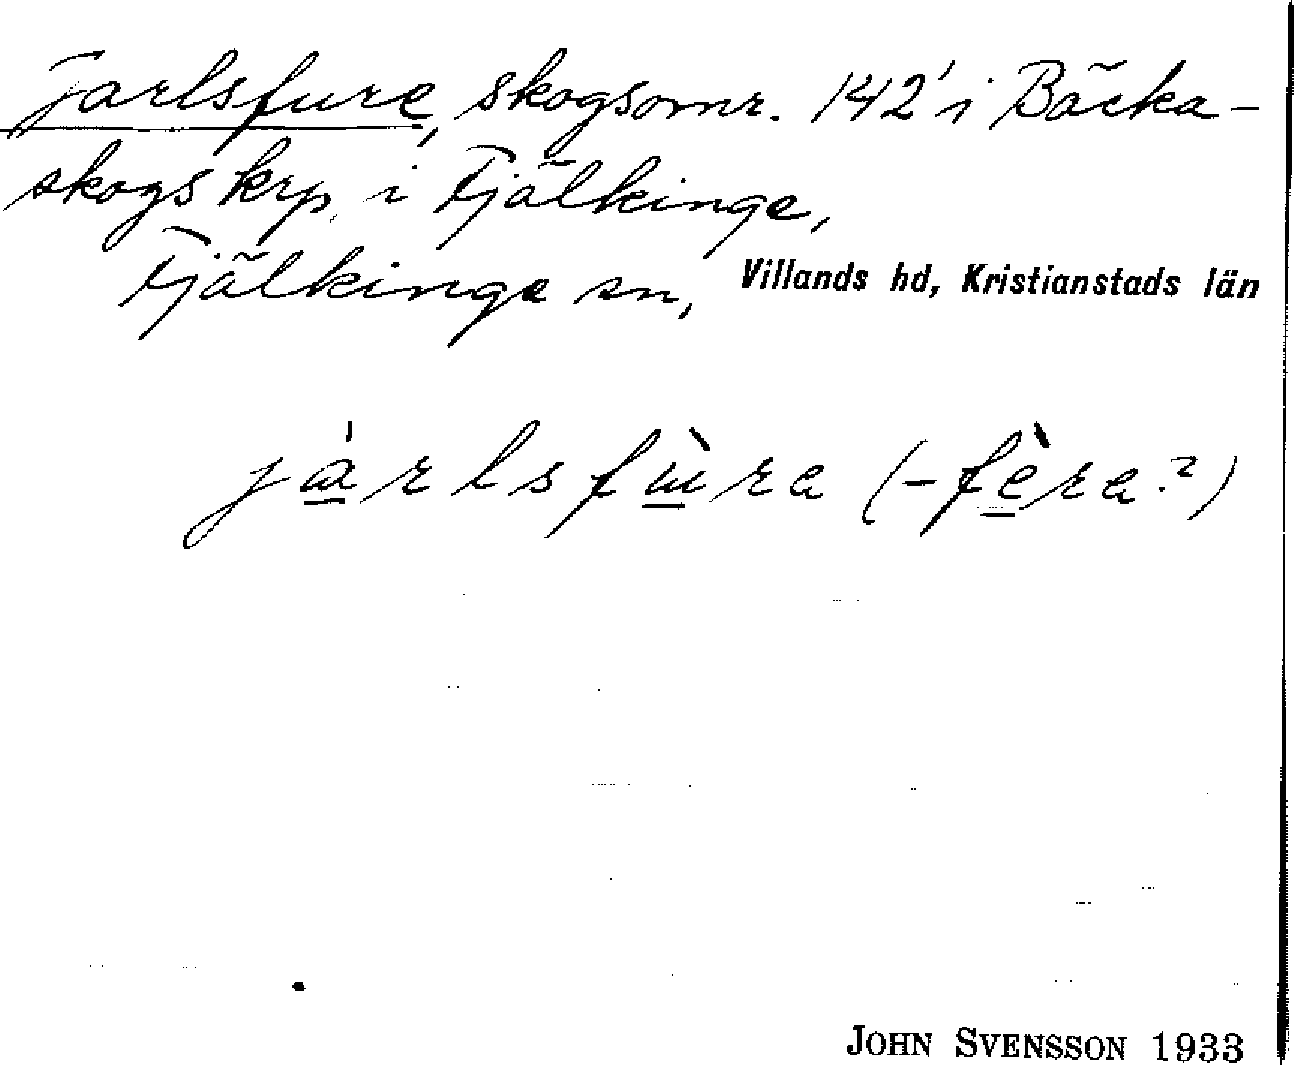 Jarlsfure, skogsomr. 142' i Bäcka-
skogs krp. i Fjälkinge,
Fjälkinge sn, Villands hd, Kristianstads län
járlsfùra (-fèra?)
JOHN SVENSSON 1933